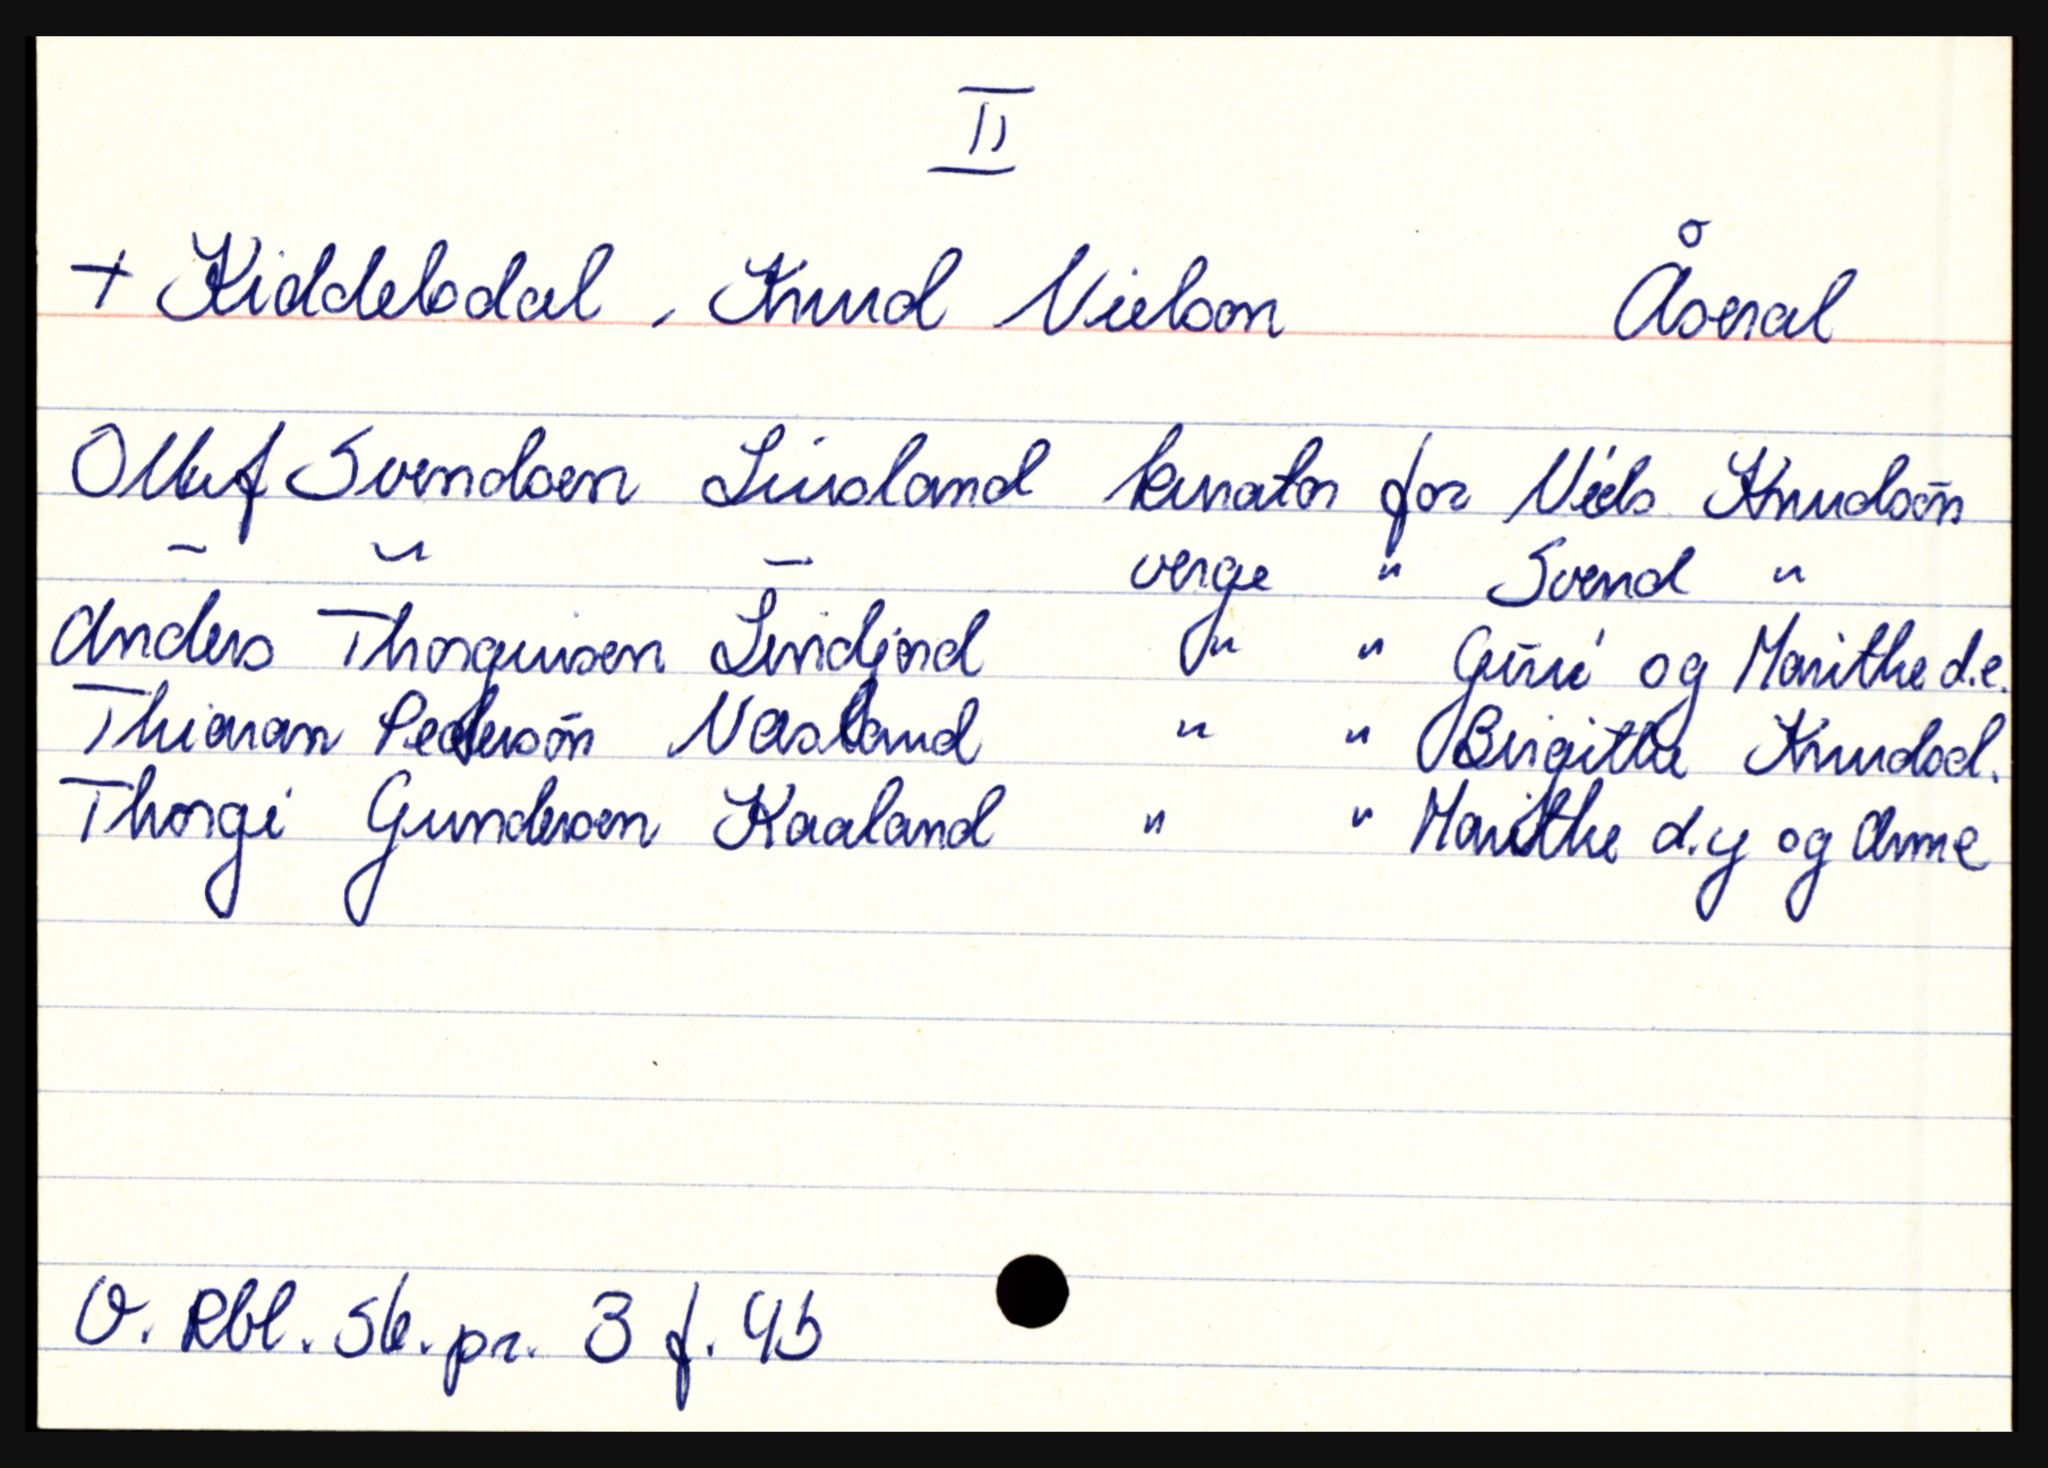 II
+ Kiddelsdal, Knud Nielson Åseral
Olluf Svendsen Liusland kurator for Niels Knudsøn
– " – verge " Svend "
Anders Thorguisen Lindjord " " Guri og Marithe d.e.
Thiaran Pedersøn Nasland " " Birgitte Knudsd.
Thorgi Gundersen Kaaland " " Marithe d.y og Anne
V. Rbl. Sk. pr. 3 f. 4b